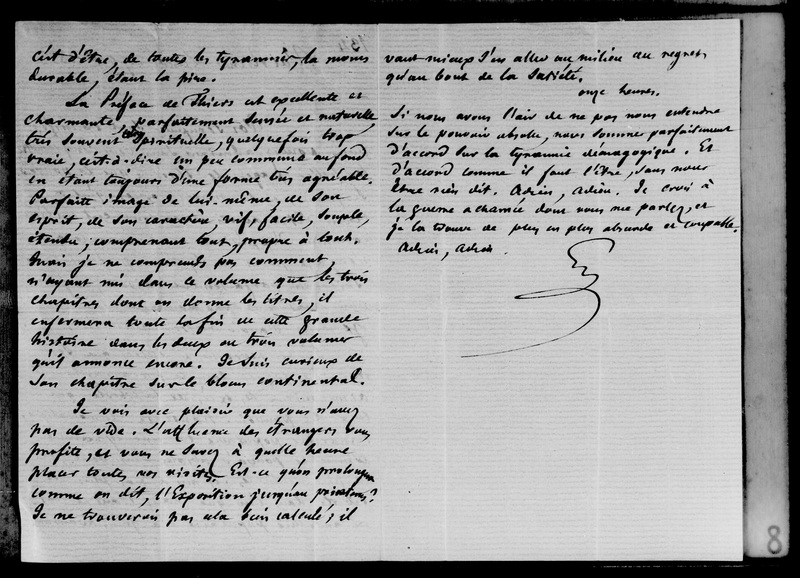 c'est d'être, de toutes les tyrannies, la moins
durable, étant la pire.
La Préface de Thiers est excellente et
charmante, parfaitement sensée et naturelle,
très souvent spirituelle, quelquefois trop
vraie, c'est-à-dire un peu commune au fond
en étant toujours d'une forme très agréable.
Parfaite image de lui-même, de son
esprit, de son caractère, vif, facile, souple,
étendu, comprenant tout, propre à tout.
Mais je ne comprends pas comment,
n'ayant mis dans ce volume que les trois
chapitres dont on donne les titres, il
enfermera toute la fin de cette grande
histoire dans les deux ou trois volumes
qu'il annonce encore. Je suis curieux de
son chapitre sur le blocus continental.
Je vois avec plaisir que vous n'avez
pas de vide. L'affluence des étrangers vous
profite, et vous ne savez à quelle heure
placer toutes vos visites. Est-ce qu'on prolongera
comme on dit, l'Exposition jusqu'au printems?
Je ne trouverais pas cela bien calculé; il
vaut mieux s'en aller au milieu des regrets
qu'au bout de la satiété.
onze heures.
Si nous avons l'air de ne pas nous entendre
sur le pouvoir absolu, nous sommes parfaitement
d'accord sur la tyrannie démagogique. Et
d'accord comme il faut l'être, sans nous
être rien dit. Adieu, adieu. Je crois à
la guerre acharnée dont vous me parlez, et
je la trouve de plus en plus absurde et coupable.
Adieu, adieu.
8